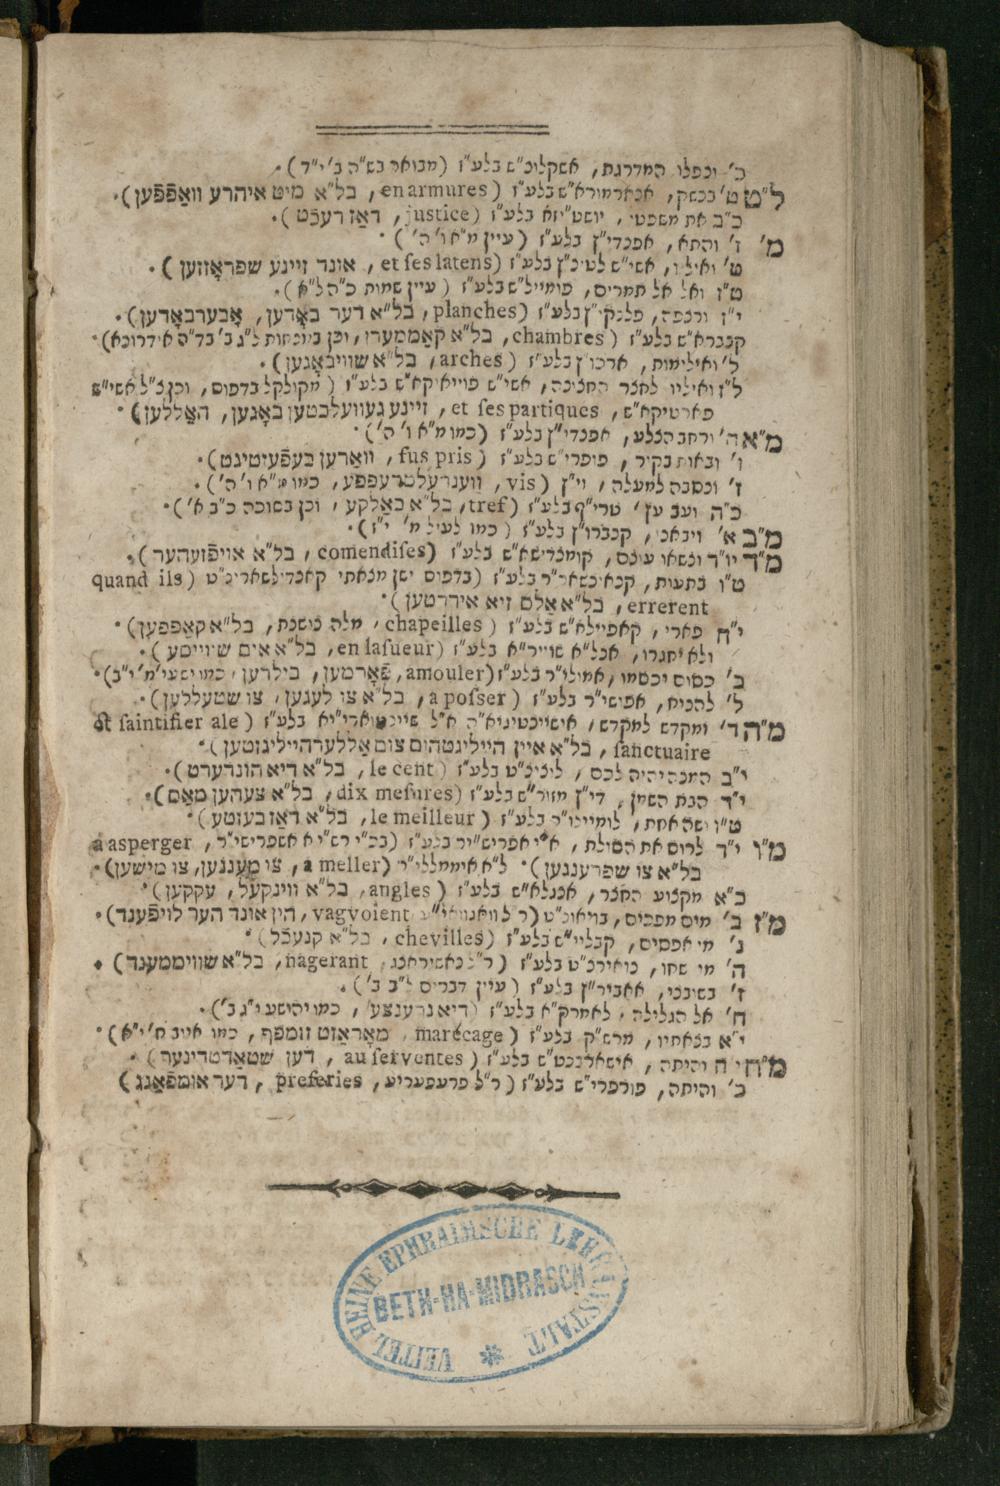 כ' וכפלו המדרגת, אשקלוכ"ש בלע"ז (מבואר בש"ה ב' י"ד).
ל"ט ט' בכשק, אכארמורא"ש בלע"ז (en armures, בל"א מיט איהרע וואַפֿפֿען).
כ"ב את משפטי, יושט"יזא בלע"ז (justice, דאַז רעכט).
מ' ז' והתא, אפכדי"ץ בלע"ז (עיין מ"א ו' ה').
ט' ואילו, אשי"ש לטיכ"ץ בלע"ז (et ses latens, אונד זיינע שפראָזזען).
ט"ז ואל אל תמרים, פומייל"ש בלע"ז (עיין שמות כ"ה ל"א).
י"ז ורצפה, פלנקי"ן בלע"ז (planches, בל"א דער באָדען, אָבערבאָדען).
קנברא"ש בלע"ז (chambres, בל"א קאַממערן, וכן ל"ג ב' בד"ה אידרוכא).
ל' ואילימות, ארכו"ן בלע"ז (arches, בל"א שוויבאָגען).
ל"ז ואיליו לחצר החיכוכה, אשי"ש פוייאיקא"ש בלע"ז (מקולקל בדפוס, וכן כ"ל אשי"ש
פארטיקא"ש, et ses partiques, זיינע געוועלבטען באָגען, האַללען).
מ"א ה' ורחב הצלע, אפכדי"ץ בלע"ז (כמו מ"א ו' ה').
ו' ובאות בקיר, פופרי"ש בלע"ז (fus pris, וואַרען בעפֿעזטיגט).
ז' וכסבה למעלה, וי"ץ (vis, ווענדעלטרעפפע, כמו מ"א ו' ה').
כ"ה ועב עץ, טרי"ף בלע"ז (tref, בל"א באַלקע, וכן בסוכה כ"ב א').
מ"ב א' ויבאכי, קכברו"ץ בלע"ז (כמו לעיל מ' י"ז).
מ"ד יו"ד וכשאו עוכם, קומכדישא"ש בלע"ז (comendises, בל"א אויפֿזעהער).
ט"ו בתעות, קכאיכשאר"ר בלע"ז (בדפוס ישן מצאתי קאכדילשאריכ"ט (quand ils
errerent, בל"א אַלס זיא איררטען).
י"ח פארי, קאפיילא"ש בלע"ז (chapeilles, מלה כושכת, בל"א קאַפפען).
ולא יחגרו, אכל"א שוייר"א בלע"ז (en la sueur, בל"א אים שווייסע).
כ' כסום יכסמו, אמולי"ר בלע"ז (amouler, פֿאָרמען, בילדען, כמו ישעי' מ' י"ב).
ל' להכיח, אפושי"ר בלע"ז (a posser, בל"א צו לעגען, צו שטעללען).
מ"ה ד' ומקדש למקדש, אישייכטיגיא"ה א"ל שיינטוארי"יא בלע"ז (et saintifier ale
sanctuaire, בל"א איין הייליגטהום צום אַללערהייליגזטען).
י"ב המכה יהיה לכם, ליכיכ"ט בלע"ז (le cent, בל"א דיא הונדערט).
י"ד הבת השמן, די"ץ מזור"ש בלע"ז (dix mesures, בל"א צעהען מאַס).
ט"ו ושה אחת, לומיילי"ר בלע"ז (le meilleur, בל"א דאַז בעזטע).
מ"ו י"ד לרוס את הסולת, א"י אפריש"יר בלע"ז (בכ"י רש"י א אשפרישי"ר, a asperger,
בל"א צו שפרענגען). ל"א איממללי"ר (a meller, צו מענגען, צו מישען).
כ"א מקצוע החצר, אכגלא"ש בלע"ז (angles, בל"א ווינקעל, עקקען).
מ"ז ב' מים מפכים, בויאוכ"ט (ר"ל וואגוואי"ע vagvoient, הין אונד הער לויפֿענד).
ג' מי אפסים, קבליי"ש בלע"ז (chevilles, בל"א קנעכֿל).
ה' מי שחו, כואירכ"ט בלע"ז (ר"ל כאשיראכג, nagerant, בל"א שוויממענד).
ז' בשובכי, אאביר"ן בלע"ז (עיין דברים ל"ב ב').
ח' אל הגלילה, לאמרק"א בלע"ז (דיא גרענצע, כמו יהושע י"ג ב').
י"א בצאתיו, מרש"ק בלע"ז (marécage, מאָראַזט זומפף, כמו איוב ח' י"א).
מ"ח י"ח והיתה, אישארבכט"ש בלע"ז (au serventes, דען שטאַדטדינער).
כ' והיתה, פורפרי"ש בלע"ז (ר"ל פרעפעריע, preferies, דער אומפֿאַנג)
VEITEL HEINE EPHRAIMSCHE LEHRANSTALT
BETH-HA-MIDRASCH